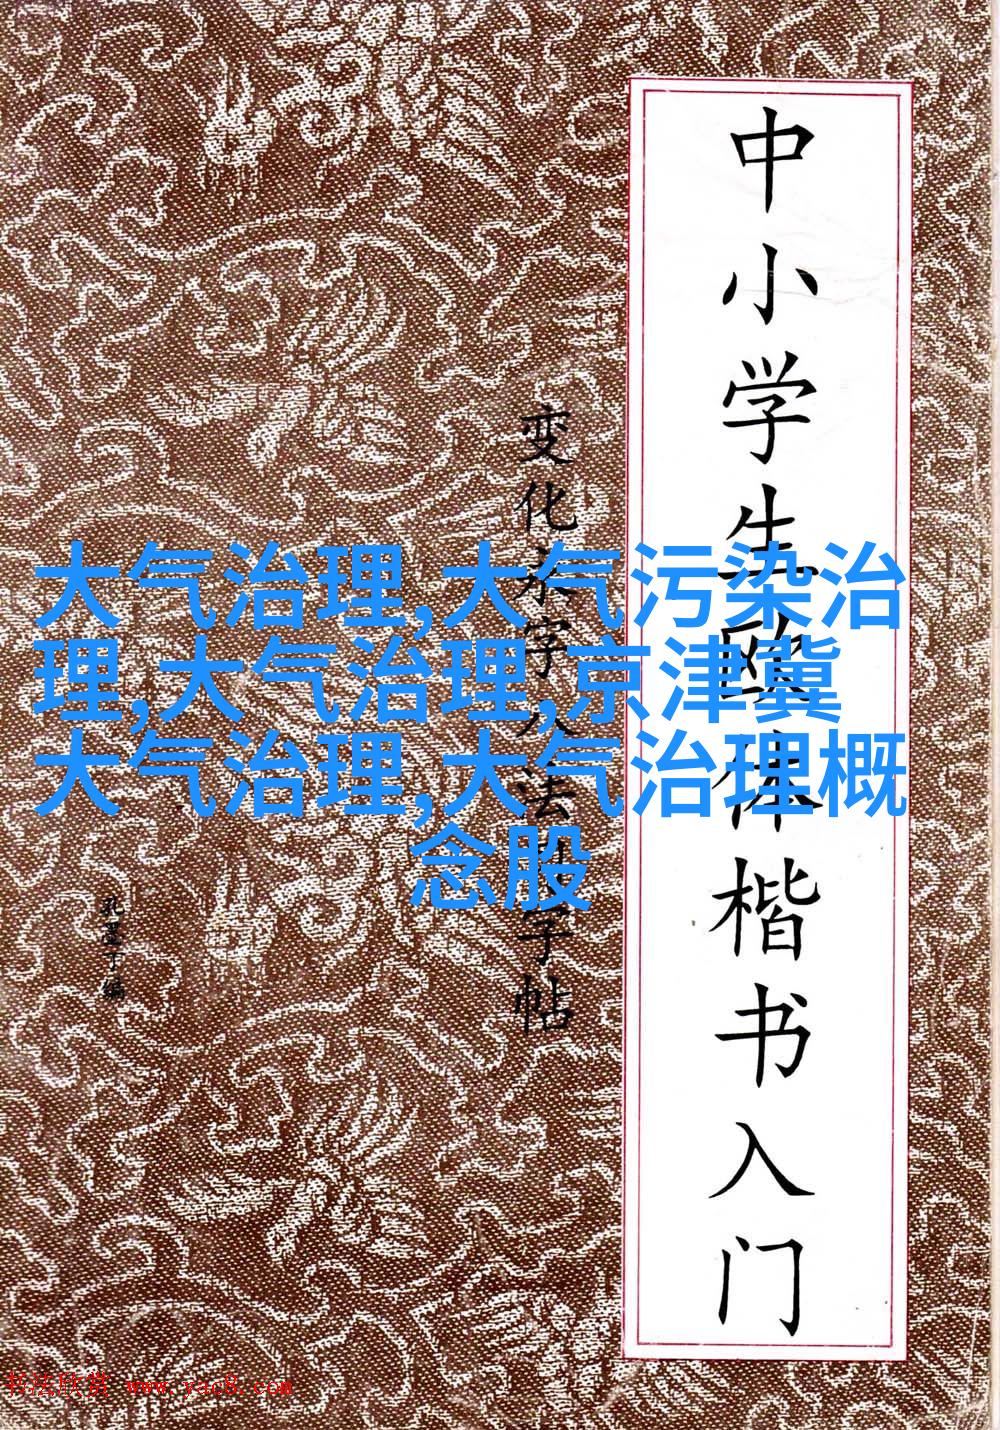 中小学生欧体楷书入门
变化永字八法习字帖
孔墨丁编
大气治理,大气污染治
理,大气治理,京津冀
大气治理,大气治理概
念股
书法欣赏 www.yac8.com